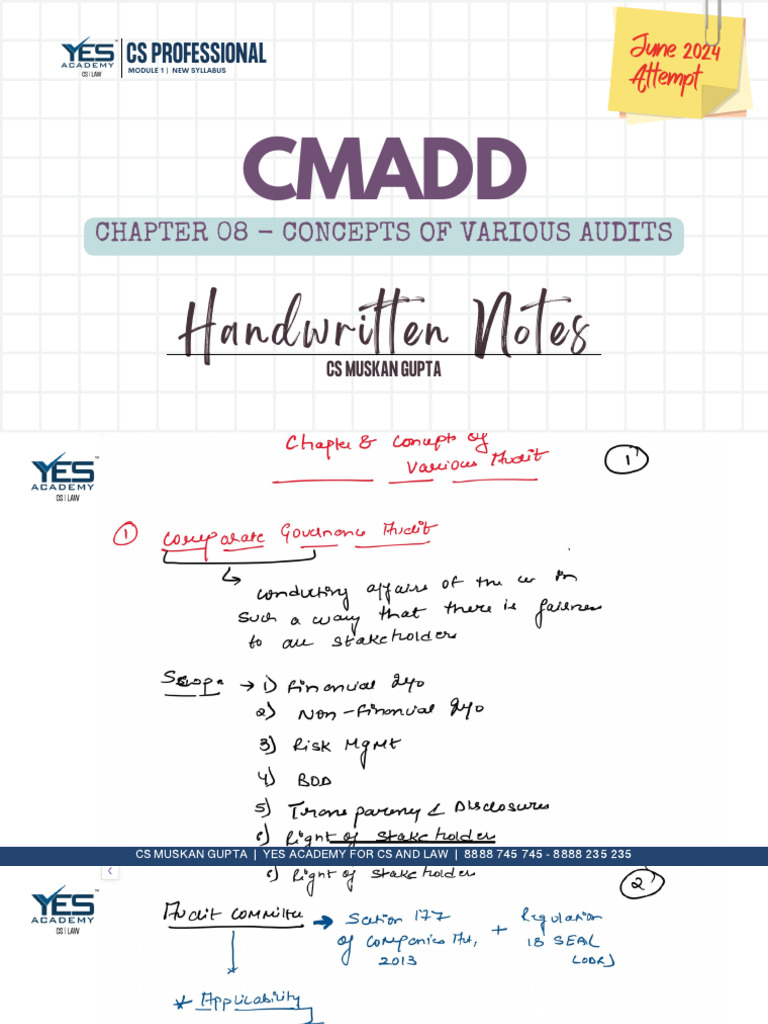 YES
ACADEMY
CS | LAW
CS PROFESSIONAL
MODULE 1 | NEW SYLLABUS
June 2024
Attempt
CMADD
CHAPTER 08 - CONCEPTS OF VARIOUS AUDITS
Handwritten Notes
CS MUSKAN GUPTA
YES
ACADEMY
CS | LAW
TM
Chapter 8 Concepts of
Various Audit
1
① Corporate Governance Audit
↳ conducting affairs of the co in
such a way that there is fairness
to all stakeholders
Scope → 1) Financial Info
2) Non-Financial Info
3) Risk Mgmt
4) BOD
5) Transparency & Disclosures
6) Right of Stakeholder
CS MUSKAN GUPTA | YES ACADEMY FOR CS AND LAW | 8888 745 745 - 8888 235 235
6) Right of Stakeholder
2
YES
ACADEMY
CS | LAW
TM
Audit Committee → Section 177 + Regulation
of Companies Act, 18 SEBI
2013 LODR)
* Applicability